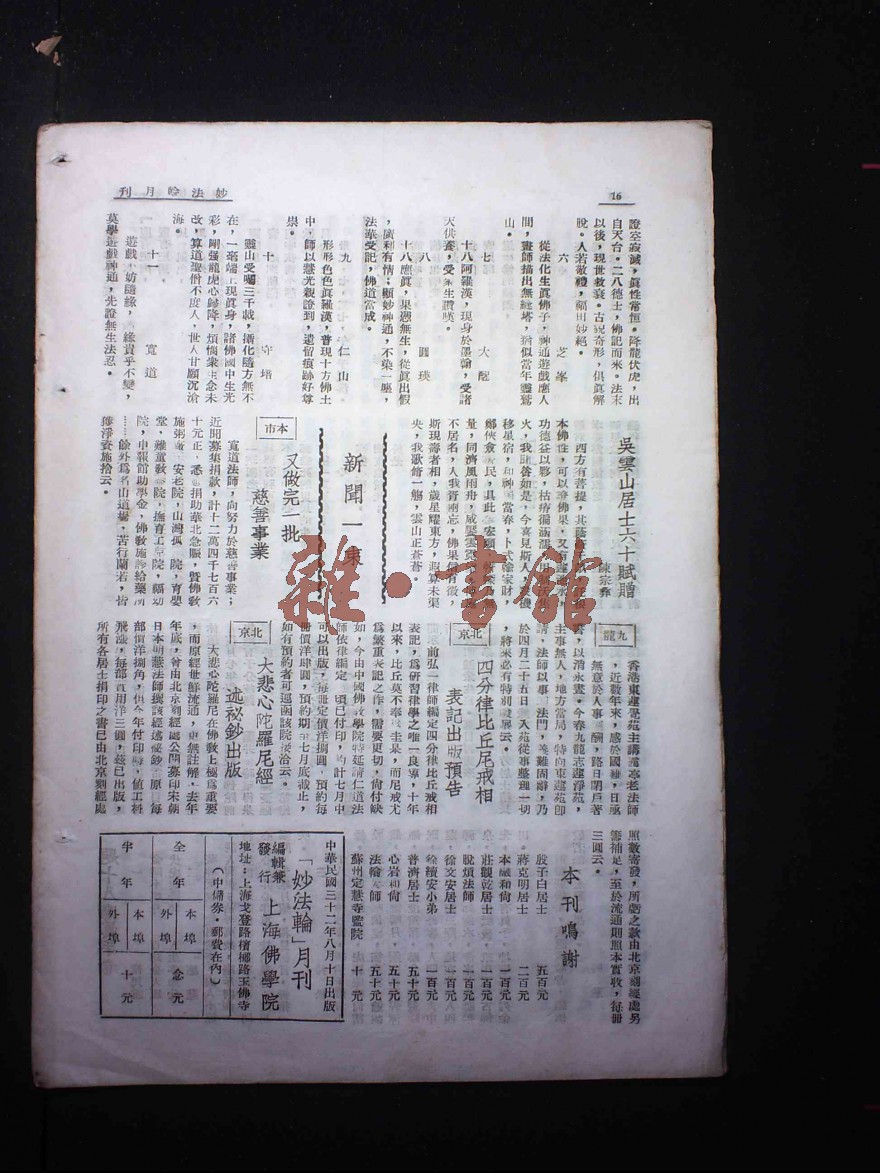 妙法輪月刊
16
證空寂滅，眞性常恒。降龍伏虎，出
自天台。二八德士，佛記而來。法末
以後，現世救衰。古貌奇形，俱眞解
脫。人若敬禮，福田妙絕。
六　芝峯
從法化生眞佛子，神通遊戲應人
間，畫師描出無縫塔，猶似當年靈鷲
山。
七　大醒
十八阿羅漢，現身於墨翰，受諸
天供養，受衆生讚嘆。
八　圓瑛
十八應眞，果憑無生，從眞出假
，廣利有情；顯妙神通，不染一塵，
法華受記，佛道當成。
九　仁山
形形色色眞羅漢，普現十方佛土
中，師以慧光親證到，遣留痕跡好尊
崇。
十　守培
靈山受囑三千載，攝化隨方無不
在，一毫端上現眞身，諸佛國中生光
彩，剛强龍虎心歸降，煩惱衆生念未
改。算道聖僧不度人，世人甘願沉淪
海。
十一　寬道
遊戲　妨隨緣，　緣貴乎不變，
莫學遊戲神通，先證無生法忍。
吳雲山居士六十賦贈
陳宗彝
西方有菩提，其
本佛性，可以證佛果，又有
功德益以夥，枯瘠彌涵濡，
火，我聞善如是，今喜見斯人，
移星宿，和神　當春，卜式輸家財，
鄭俠
量，同濟風雨舟，咸
不居名，人我胥兩忘，佛果信有徵，
斯現壽者相，歲星耀東方，遐算未渠
央，我歌侑一觴，雲山正蒼蒼。
新聞一束
本市
又做完一批
慈善事業
寬道法師，向努力於慈善事業；
近聞募集捐款，計十二萬四千七百六
十元正，悉　捐助華北急賑，曁佛敎
施粥　、安老院，山灣孤　院，育嬰
堂，難童敎　院，撫育工　院，福幼
院，申報館助學金，佛敎施診給藥所
……餘外爲名山道塲，苦行蘭若，皆
蓮淨資施捨云。
九龍
香港東蓮覺苑主講靄亭老法師
，近數年來，感於國難，日亟
無意於人事　酬，路日閉戶著
書，以消永晝。今春九龍志蓮淨苑，
主事無人，地方當局，特向東蓮苑卽
請，法師以事　法門，義難固辭，乃
於四月二十五日　入苑從事整理一切
，將來必有特別發展云。
北京
四分律比丘尼戒相
表記出版預告
前弘一律師編定四分律比丘戒相
表記，爲硏習律學之唯一良導，十年
以來，比丘莫不奉　圭臬，而尼戒尤
爲繁重表記之作，需要更切，尙付缺
如，今由中國佛敎學院特延請仁道法
師依律編定　頃已付印，約計七月中
可以出版，每冊定價洋捌圓，預約每
冊價洋肆圓，預約期至七月底截止，
如有預約者可逕函該院接洽云。
北京
大悲心陀羅尼經
述祕鈔出版
大悲心陀羅尼在佛敎上極爲重要
，而原經世鮮流通，更無註解，去年
年底，曾由北京刻經處公開募印宋朝
日本明慧法師撰該經述祕鈔，原　每
部價洋捌角，但今年付印時，値工料
飛漲，每部實用洋三圓，茲已出版，
所有各居士捐印之書已由北京刻經處
照數寄發，所虧之款由北京刻經處另
籌補足，至於流通則照本實收，每册
三圓云。
本刊鳴謝
殷子白居士　五百元
蔣克明居士　二百元
本融和尙　一百元
莊觀乾居士　一百元
脫煩法師　一百元
徐文安居士　一百元
徐積安小弟　一百元
普濟居士　五十元
心岩和尙　五十元
法輪大師　五十元
蘇州定慧寺監院　十元
中華民國三十二年八月十日出版
「妙法輪」月刊
編輯兼發行　上海佛學院
地址：上海戈登路檳榔路玉佛寺
（中儲券・郵費在內）
全年　本埠　外埠　念元
半年　本埠　外埠　十元
雜・書館